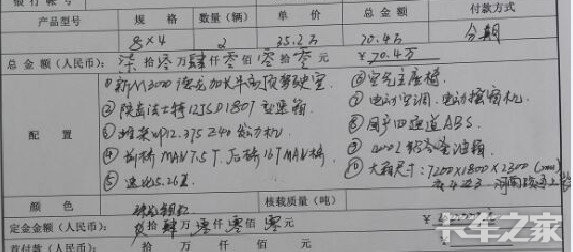 银行帐号
产品型号 规格 数量(辆) 单价 总金额 付款方式
8×4 2 35.2万 70.4万 分期
总金额(人民币): 柒拾零万肆仟零佰零拾零元 ¥70.4万
配置
①新M3000德龙加长半高顶驾驶室
②陕齿法士特12JSD180T变速箱
③潍柴WP12.375E40发动机
④前桥MAN7.5T,后桥16TMAN桥
⑤速比5.26
⑥空气主座椅
⑦电动空调,电动摇窗机
⑧国产四通道ABS
⑨400L铝合金油箱
⑩大箱尺寸:7200×1800×2300(mm)
颜色 核载质量(吨)
定金金额(人民币): 拾肆万零仟零佰零元 ¥
首付款(人民币): 拾 万 仟 佰 元 ¥
卡车之家